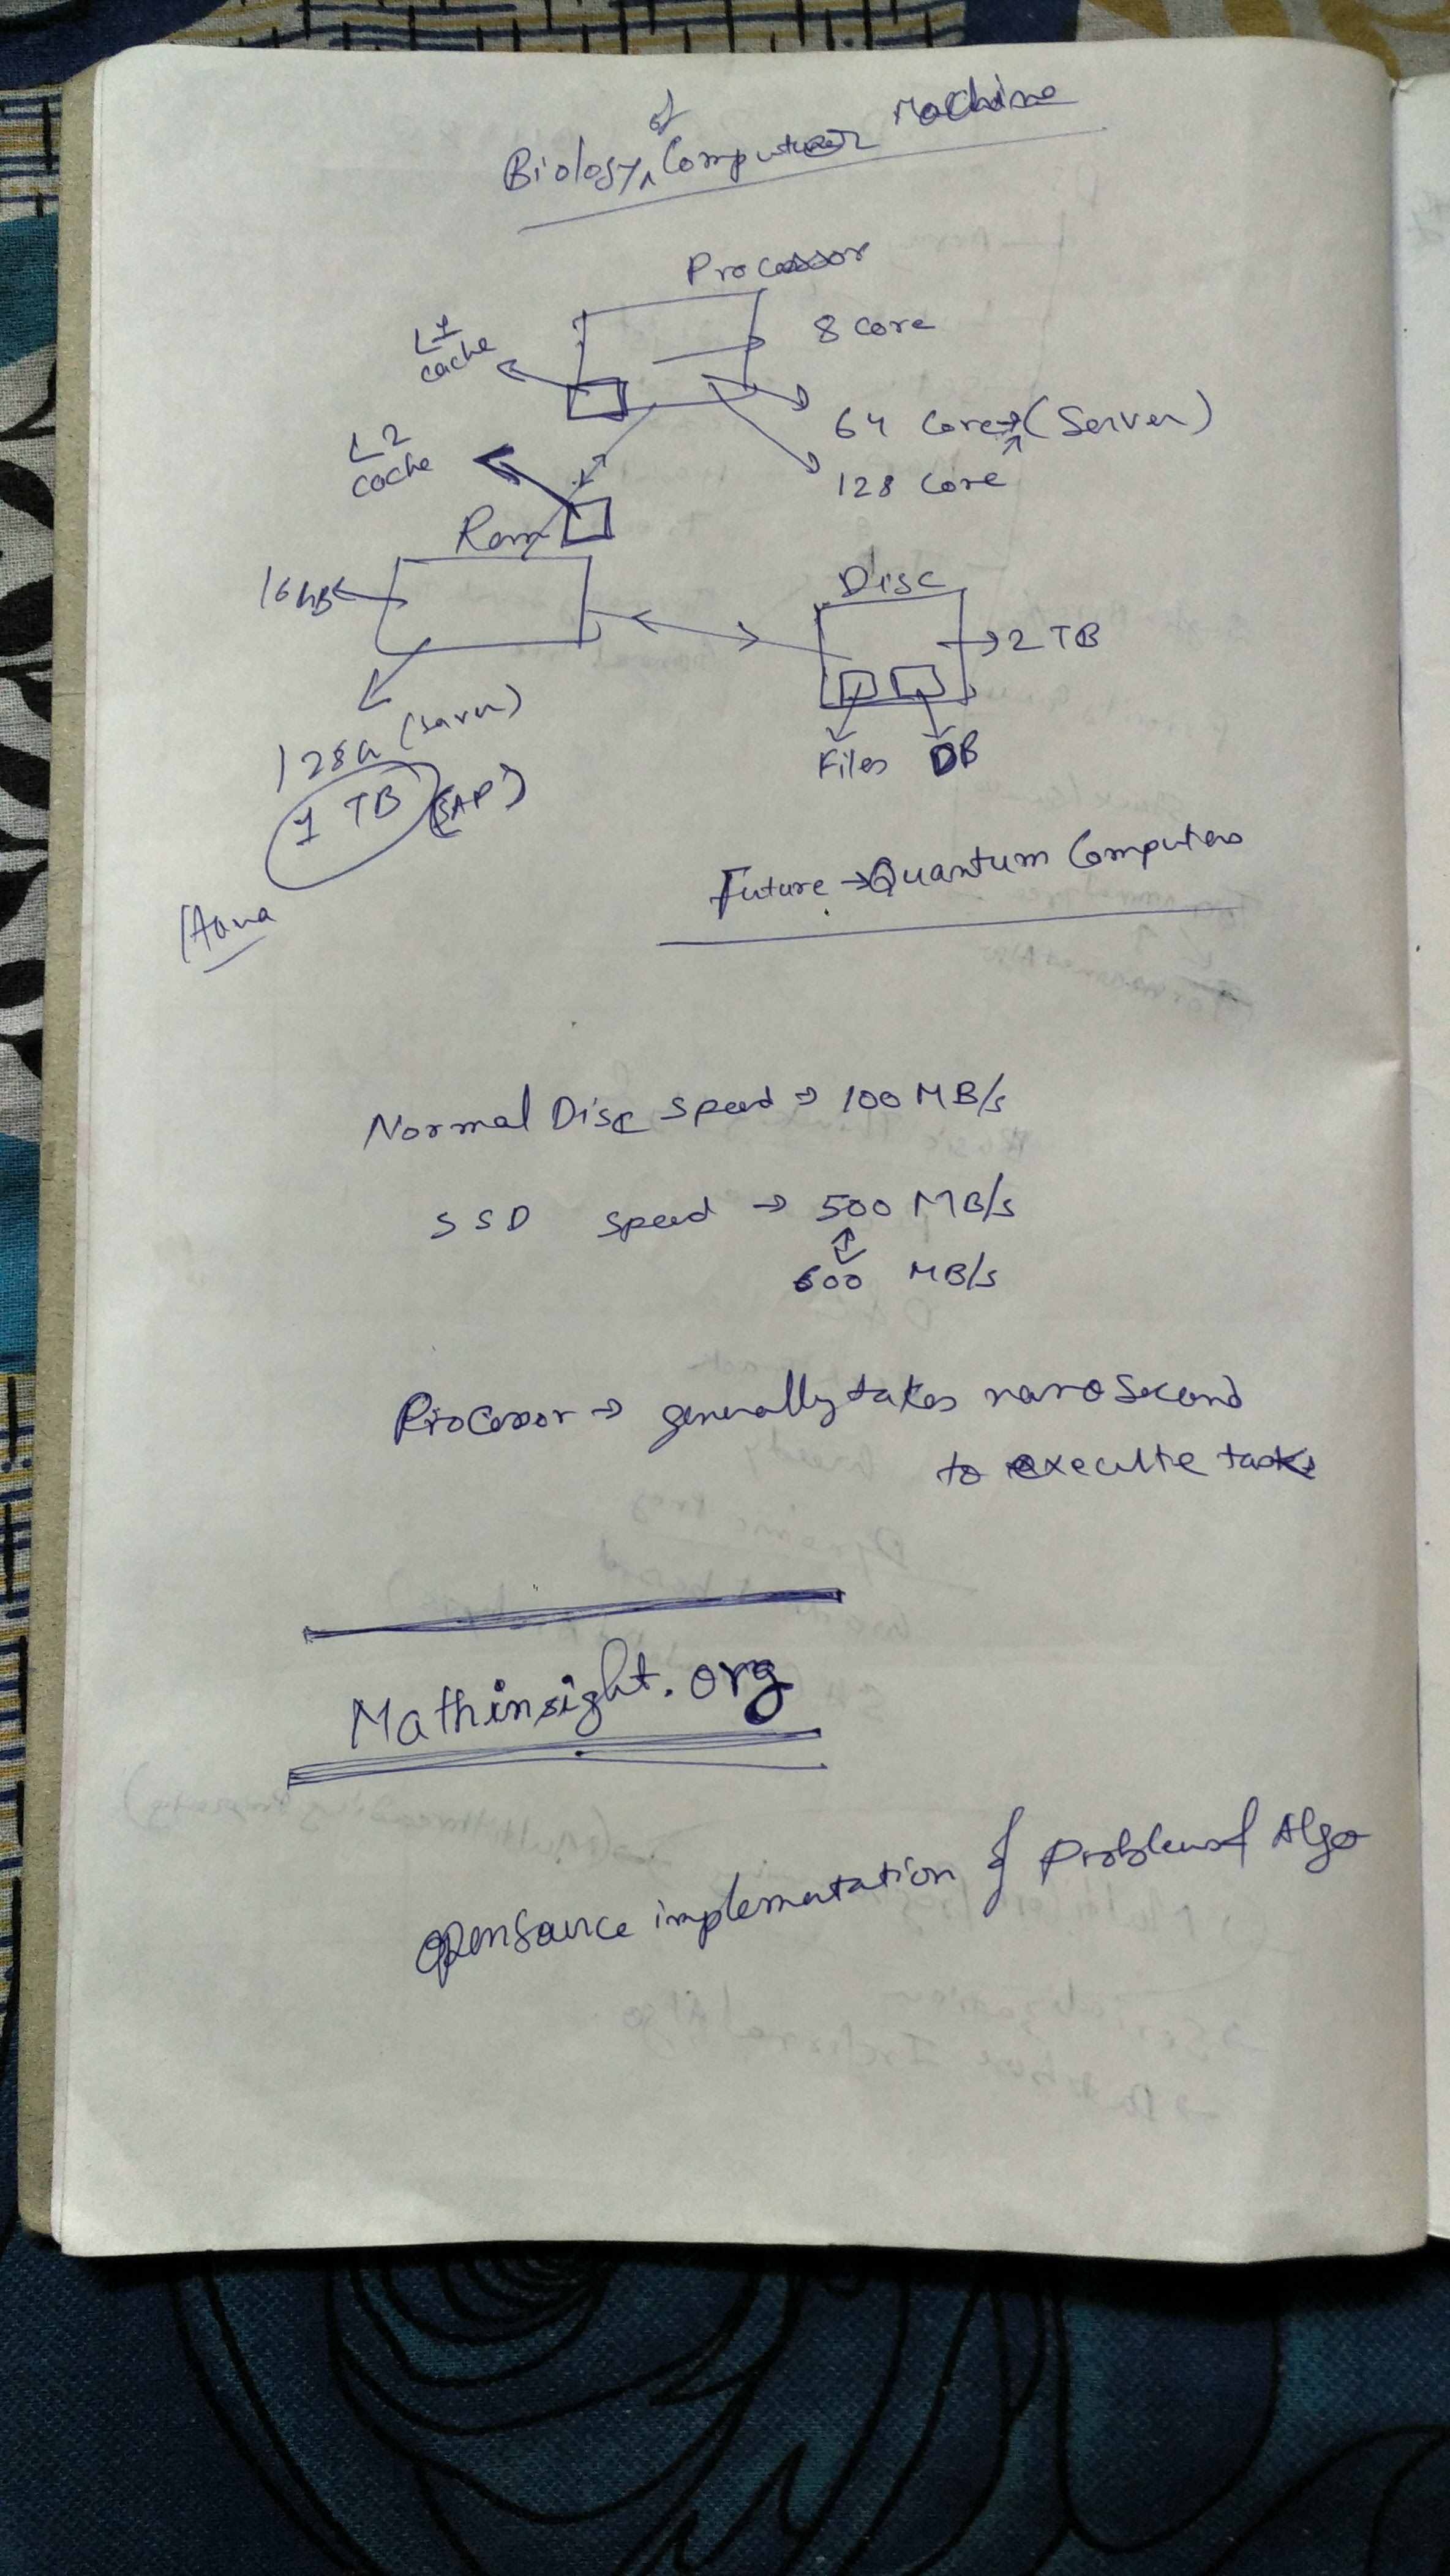 Biology of Computer Machine
Processor
8 core
L1
cache
64 core → (Server)
128 core
L2
cache
Ram
16GB
Disc
2 TB
128G (Server)
1 TB (SAP)
Files DB
Hana
Future → Quantum Computers
Normal Disc speed → 100 MB/s
SSD speed → 500 MB/s
600 MB/s
Processor → generally takes nano second
to execute task
Mathinsight.org
opensource implementation of Problem of Algo